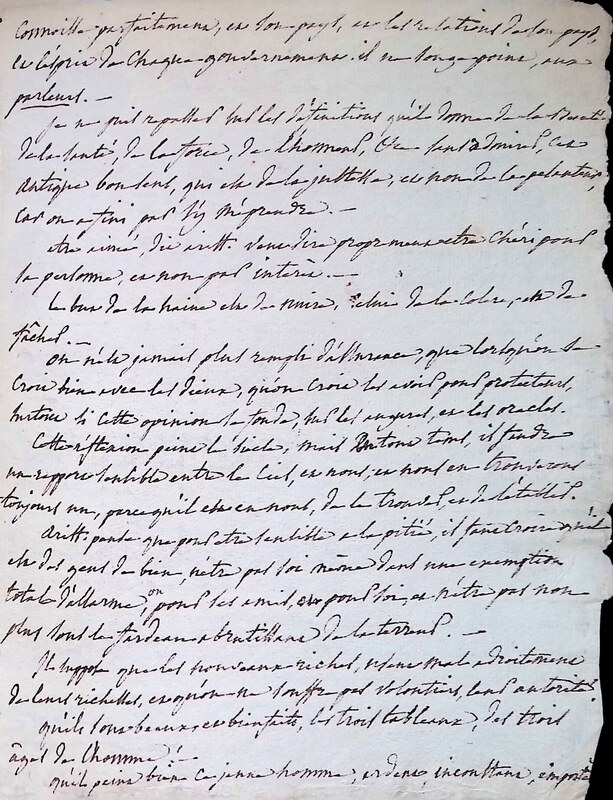 connoitre parfaitement, et son pays, et les relations de son pays,
et l'esprit de chaque gouvernement. il ne songe point, aux
parleurs. —
je ne puis repasser sur les définitions qu'il donne de la beauté
de la santé, de la force, de l'honneur, &c sans admirer, cet
antique bon sens, qui est de la justesse, et non de la pesanteur,
car on a fini par s'y méprendre. —
etre aimé, dit arist. veut dire proprement etre chéri pour
sa personne, et non par intérêt. —
le but de la haine est de nuire, celui de la colere, est de
fâcher. —
on n'est jamais plus rempli d'assurance, que lorsqu'on se
croit bien avec les dieux, qu'on croit les avoir pour protecteurs,
surtout si cette opinion se fonde, sur les augures, et les oracles.
Cette réflexion peint le siecle, mais en tout tems, il faudra
un rapport sensible entre le ciel, et nous, et nous en trouverons
toujours un, parce qu'il est en nous, de le trouver, et de l'établir.
Arist. pense que pour etre sensible a la pitié, il faut croire qu'il
est des gens de bien, n'etre pas soi même dans une exemption
total d'allarme, ou pour ses amis, ou pour soi, et n'etre pas non
plus sous le fardeau abrutissant de la terreur. —
Il suppose que les nouveaux riches, usent mal adroitement
de leurs richesses, et qu'on ne souffre pas volontiers, leur autorité.
qu'ils sont beaux, et bien faits, les trois tableaux, des trois
âges de l'homme! —
qu'il peint bien ce jeune homme, ardent, inconstant, emporté